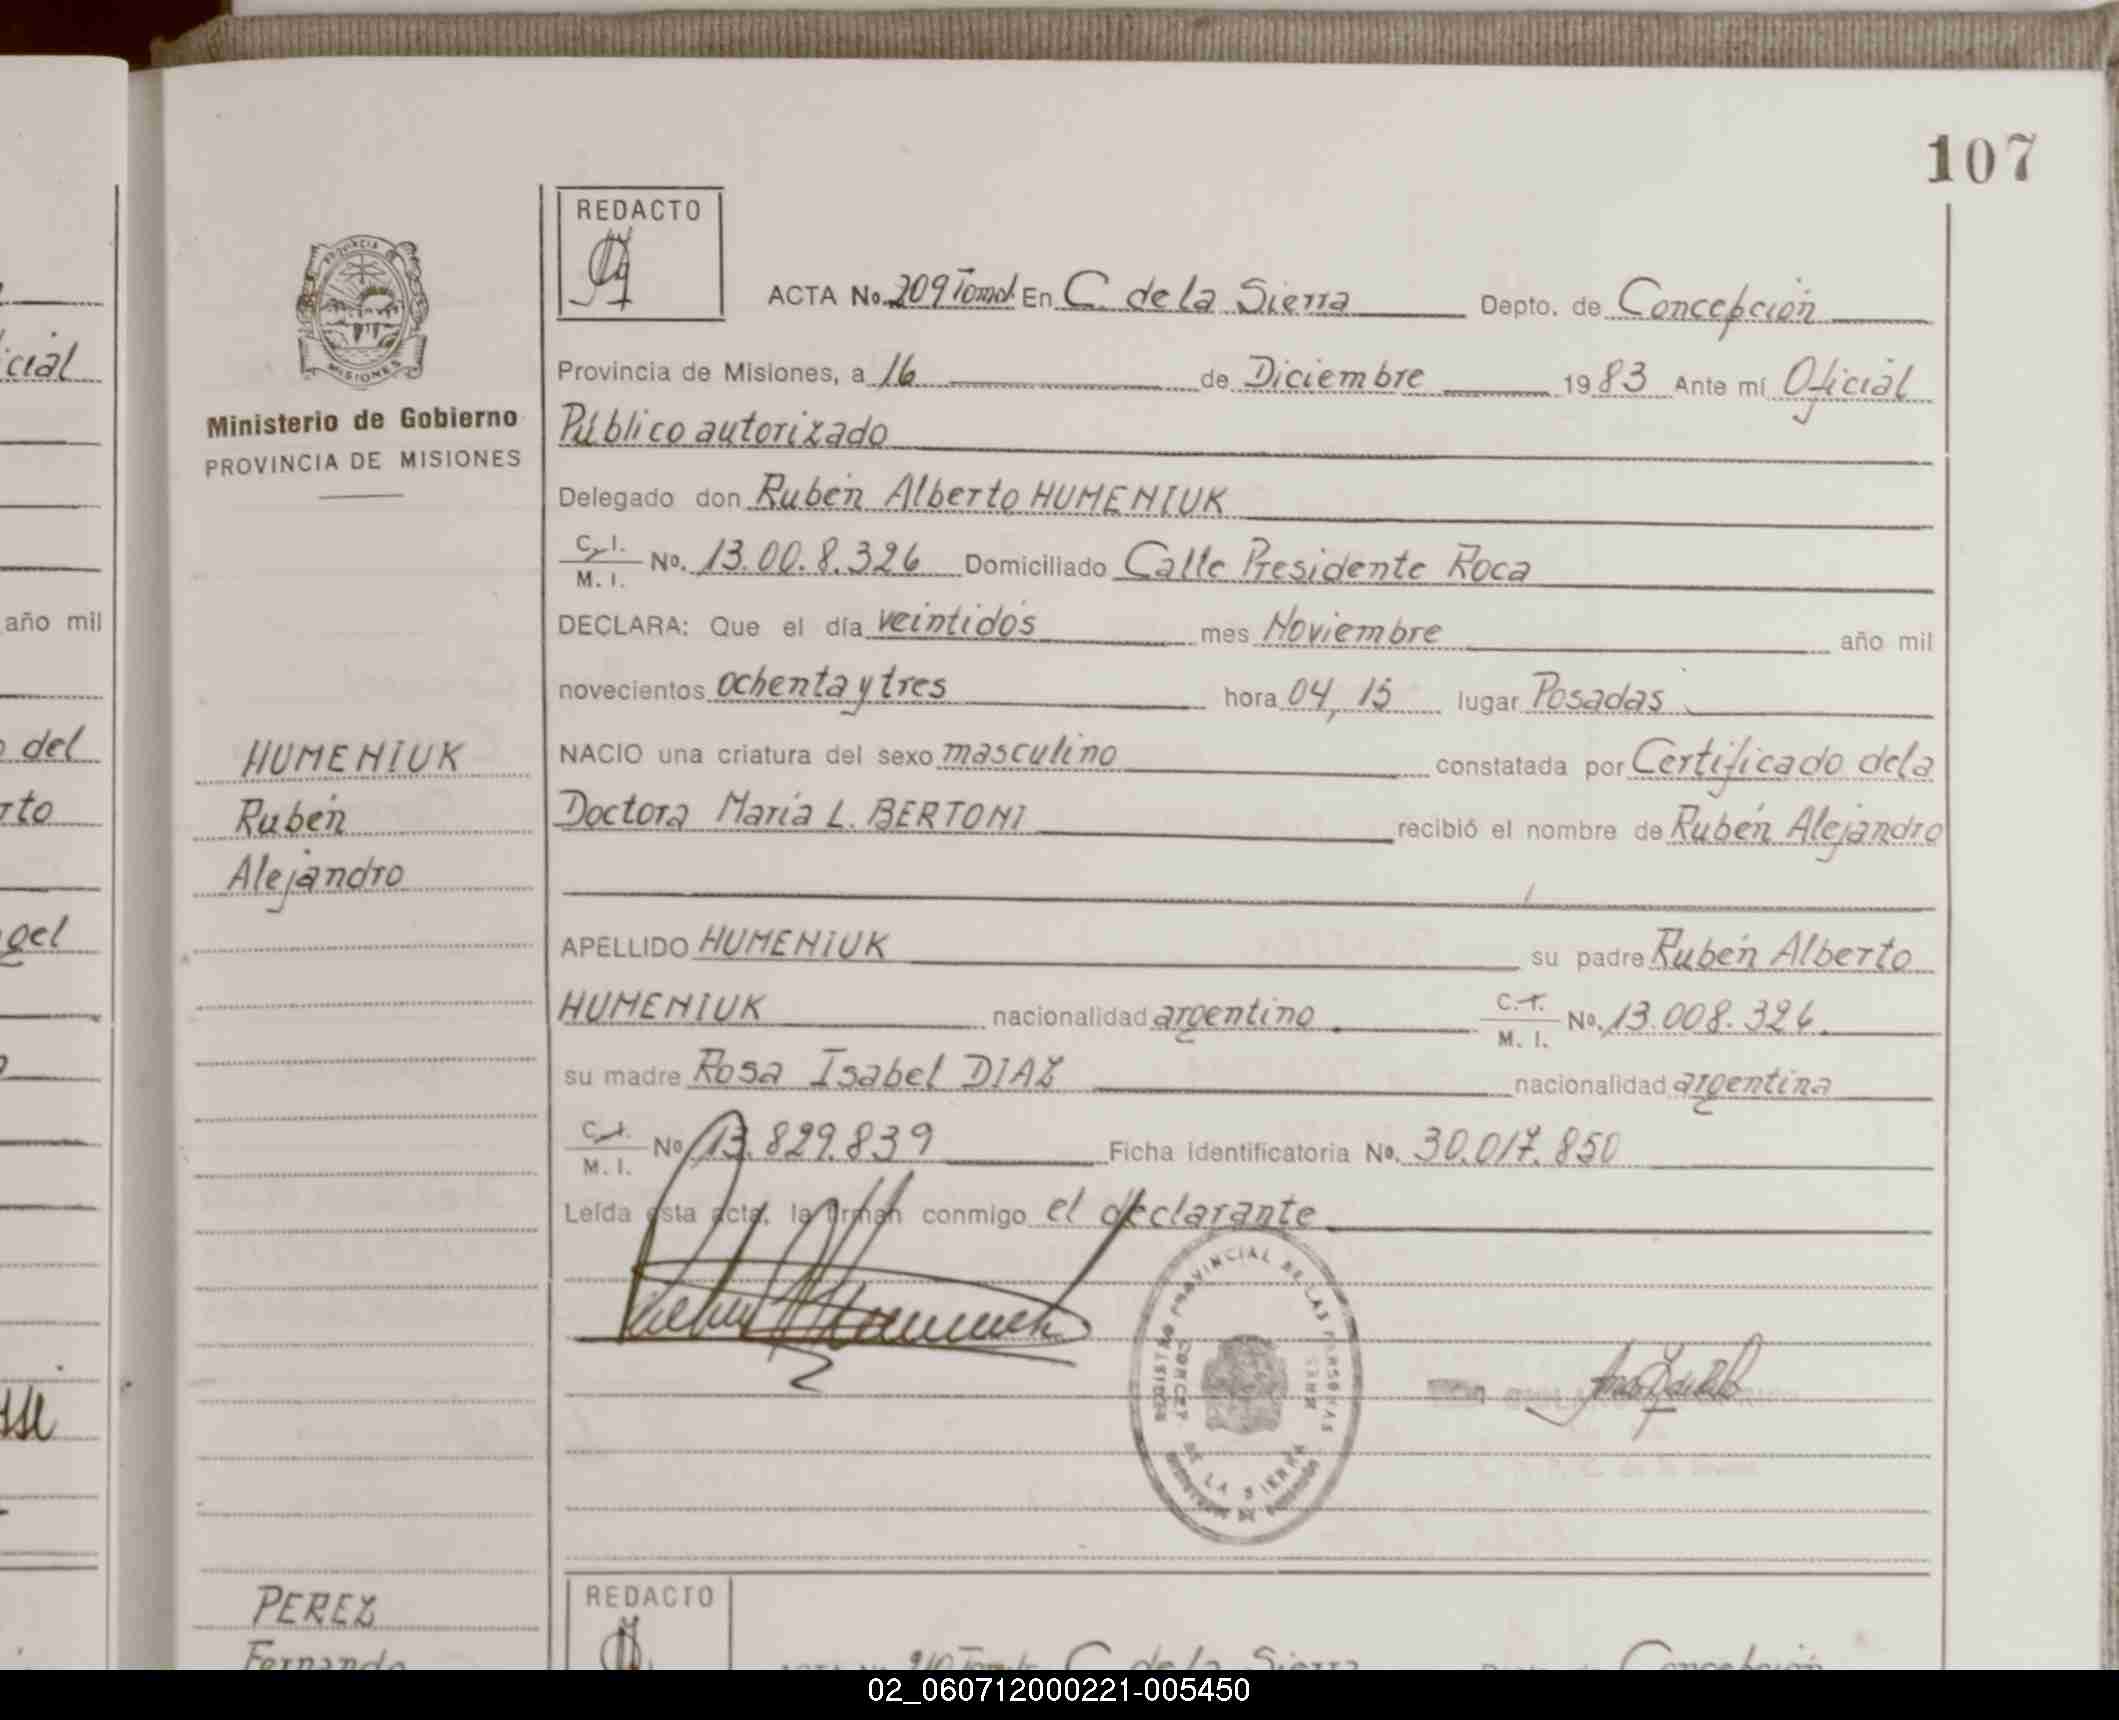 107
REDACTO
ACTA No. 209 Tomo I. En C. de la Sierra Depto. de Concepción
Provincia de Misiones, a 16 de Diciembre 1983 Ante mí Oficial
Público autorizado
Delegado don Rubén Alberto HUMENIUK
C. I.
M. I. No. 13.00.8.326 Domiciliado Calle Presidente Roca
DECLARA: Que el día veintidós mes Noviembre año mil
novecientos ochenta y tres hora 04,15 lugar Posadas
NACIO una criatura del sexo masculino constatada por Certificado de la
Doctora María L. BERTONI recibió el nombre de Rubén Alejandro
APELLIDO HUMENIUK su padre Rubén Alberto
HUMENIUK nacionalidad argentino C. I.
M. I. No. 13.008.326
su madre Rosa Isabel DIAZ nacionalidad argentina
C. I.
M. I. No 13.829.839 Ficha identificatoria No. 30.017.850
Leída esta acta, la firman conmigo el declarante
PROVINCIAL DE LAS PERSONAS
DE LA SIERRA
PROVINCIA
MISIONES
Ministerio de Gobierno
PROVINCIA DE MISIONES
HUMENIUK
Rubén
Alejandro
PEREZ
Fernando
REDACTO
C. de la Sierra
Concepción
icial
año mil
del
rto
gel
02_060712000221-005450